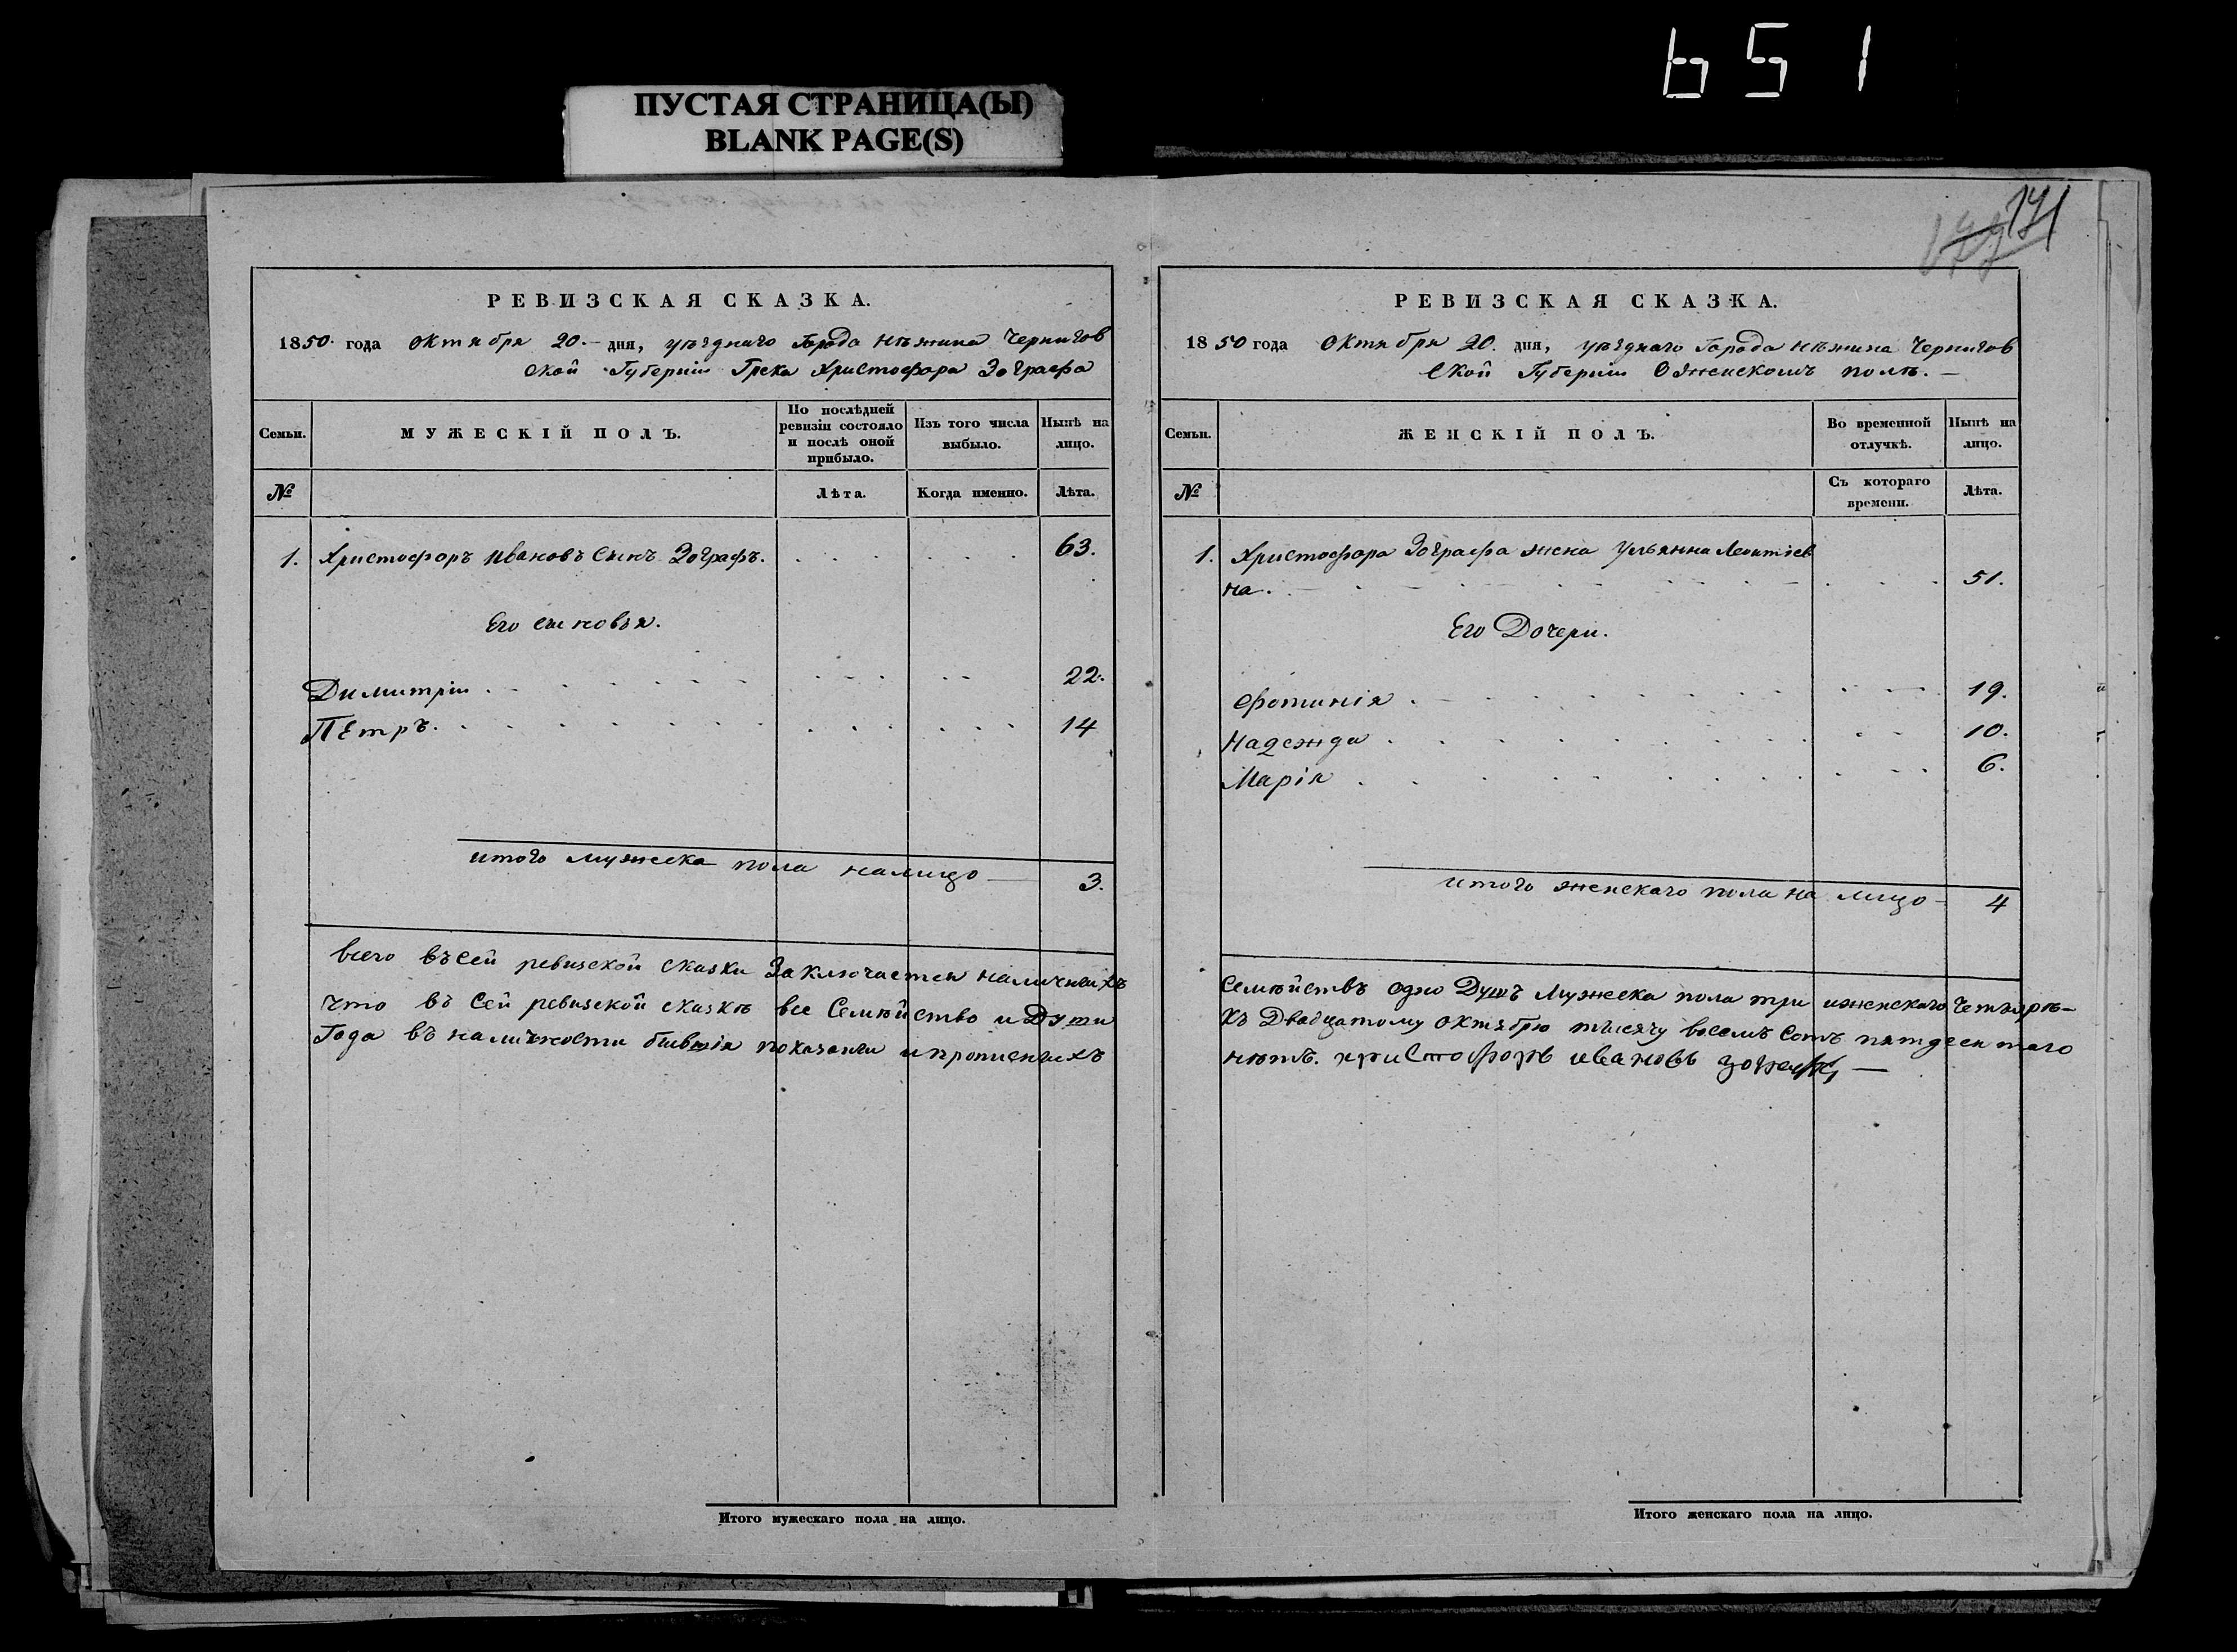 651
ПУСТАЯ СТРАНИЦА(Ы)
BLANK PAGE(S)
171
РЕВИЗСКАЯ СКАЗКА.
1850 года октября 20 дня, уѣзднаго Города Нѣжина Чернигов
ской Губерніи Грека Христофора Зографа
Семьи.
МУЖЕСКІЙ ПОЛЪ.
По послѣдней ревизіи состояло и послѣ оной прибыло.
Изъ того числа выбыло.
Нынѣ на лицо.
№
Лѣта.
Когда именно.
Лѣта.
1. Христофоръ Ивановъ Сынъ Зографъ. 63.
Его сыновья.
Димитрій 22.
Петръ. 14
итого мужеска пола налицо 3.
всего въ сей ревизской сказки Заключается наличныхъ
что въ Сей ревизской сказкѣ все Семѣйство и Души
Года въ наличности бывшія показаны и прописныхъ
Итого мужескаго пола на лицо.
РЕВИЗСКАЯ СКАЗКА.
1850 года Октября 20. дня, уѣзднаго Города Нѣжина Чернигов
ской Губерніи О женскомъ полѣ.
Семьи.
ЖЕНСКІЙ ПОЛЪ.
Во временной отлучкѣ.
Нынѣ на лицо.
№
Съ котораго времени.
Лѣта.
1. Христофора Зографа жена Ульянна Леонтіев
на. 51.
Его Дочери.
Фотинія 19.
Надежда 10.
Марія 6.
итого женскаго пола на лицо 4
Семѣйствъ одно Душъ Мужеска пола три и женскаго Четырѣ
къ Двадцатому октябрю тысячу восемъ сотъ пятдесятаго
нѣтъ. христофоръ ивановъ
Итого женскаго пола на лицо.